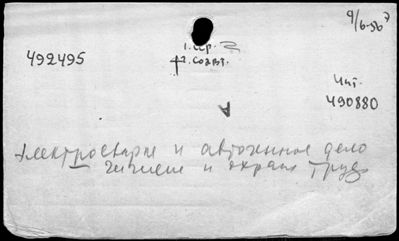 9/6-56
1. Сер.
492495
2. Соавт.
Чит.
490880
А
Электросварка и автогенное дело
гигиена и охрана труда